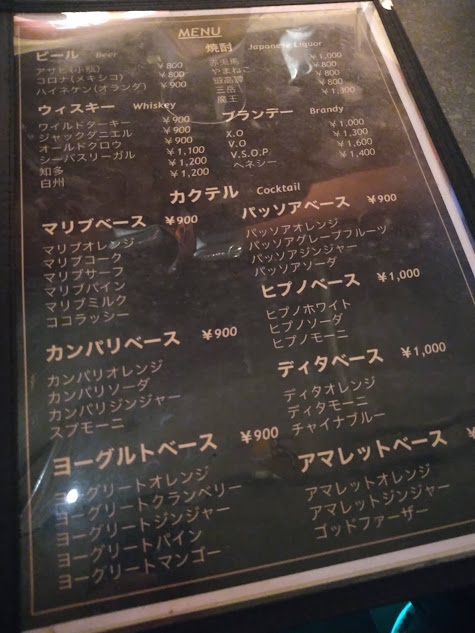 MENU
ビール Beer
アサヒ(小瓶) ¥800
コロナ(メキシコ) ¥800
ハイネケン(オランダ) ¥900
ウィスキー Whiskey
ワイルドターキー ¥900
ジャックダニエル ¥900
オールドクロウ ¥900
シーバスリーガル ¥1,100
知多 ¥1,200
白州 ¥1,200
焼酎 Japanese Liquor
赤兎馬 ¥1,000
やまねこ ¥800
¥800
三岳 ¥800
魔王 ¥1,300
ブランデー Brandy
X.O ¥1,000
V.O ¥1,300
V.S.O.P. ¥1,600
ヘネシー ¥1,400
カクテル Cocktail
マリブベース ¥900
マリブオレンジ
マリブコーク
マリブサーフ
マリブパイン
マリブミルク
ココラッシー
カンパリベース ¥900
カンパリオレンジ
カンパリソーダ
カンパリジンジャー
スプモーニ
ヨーグルトベース ¥900
ヨーグリートオレンジ
ヨーグリートクランベリー
ヨーグリートジンジャー
ヨーグリートパイン
ヨーグリートマンゴー
パッソアベース ¥900
パッソアオレンジ
パッソアグレープフルーツ
パッソアジンジャー
パッソアソーダ
ヒプノベース ¥1,000
ヒプノホワイト
ヒプノソーダ
ヒプノモーニ
ディタベース ¥1,000
ディタオレンジ
ディタモーニ
チャイナブルー
アマレットベース ¥
アマレットオレンジ
アマレットジンジャー
ゴッドファーザー